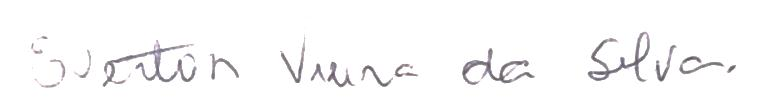 Everton Vieira da Silva.